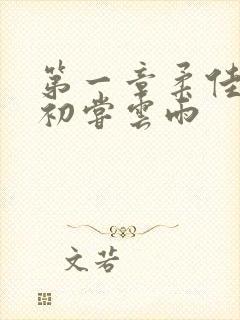 第一章柔佳
初嘗雲雨
文若